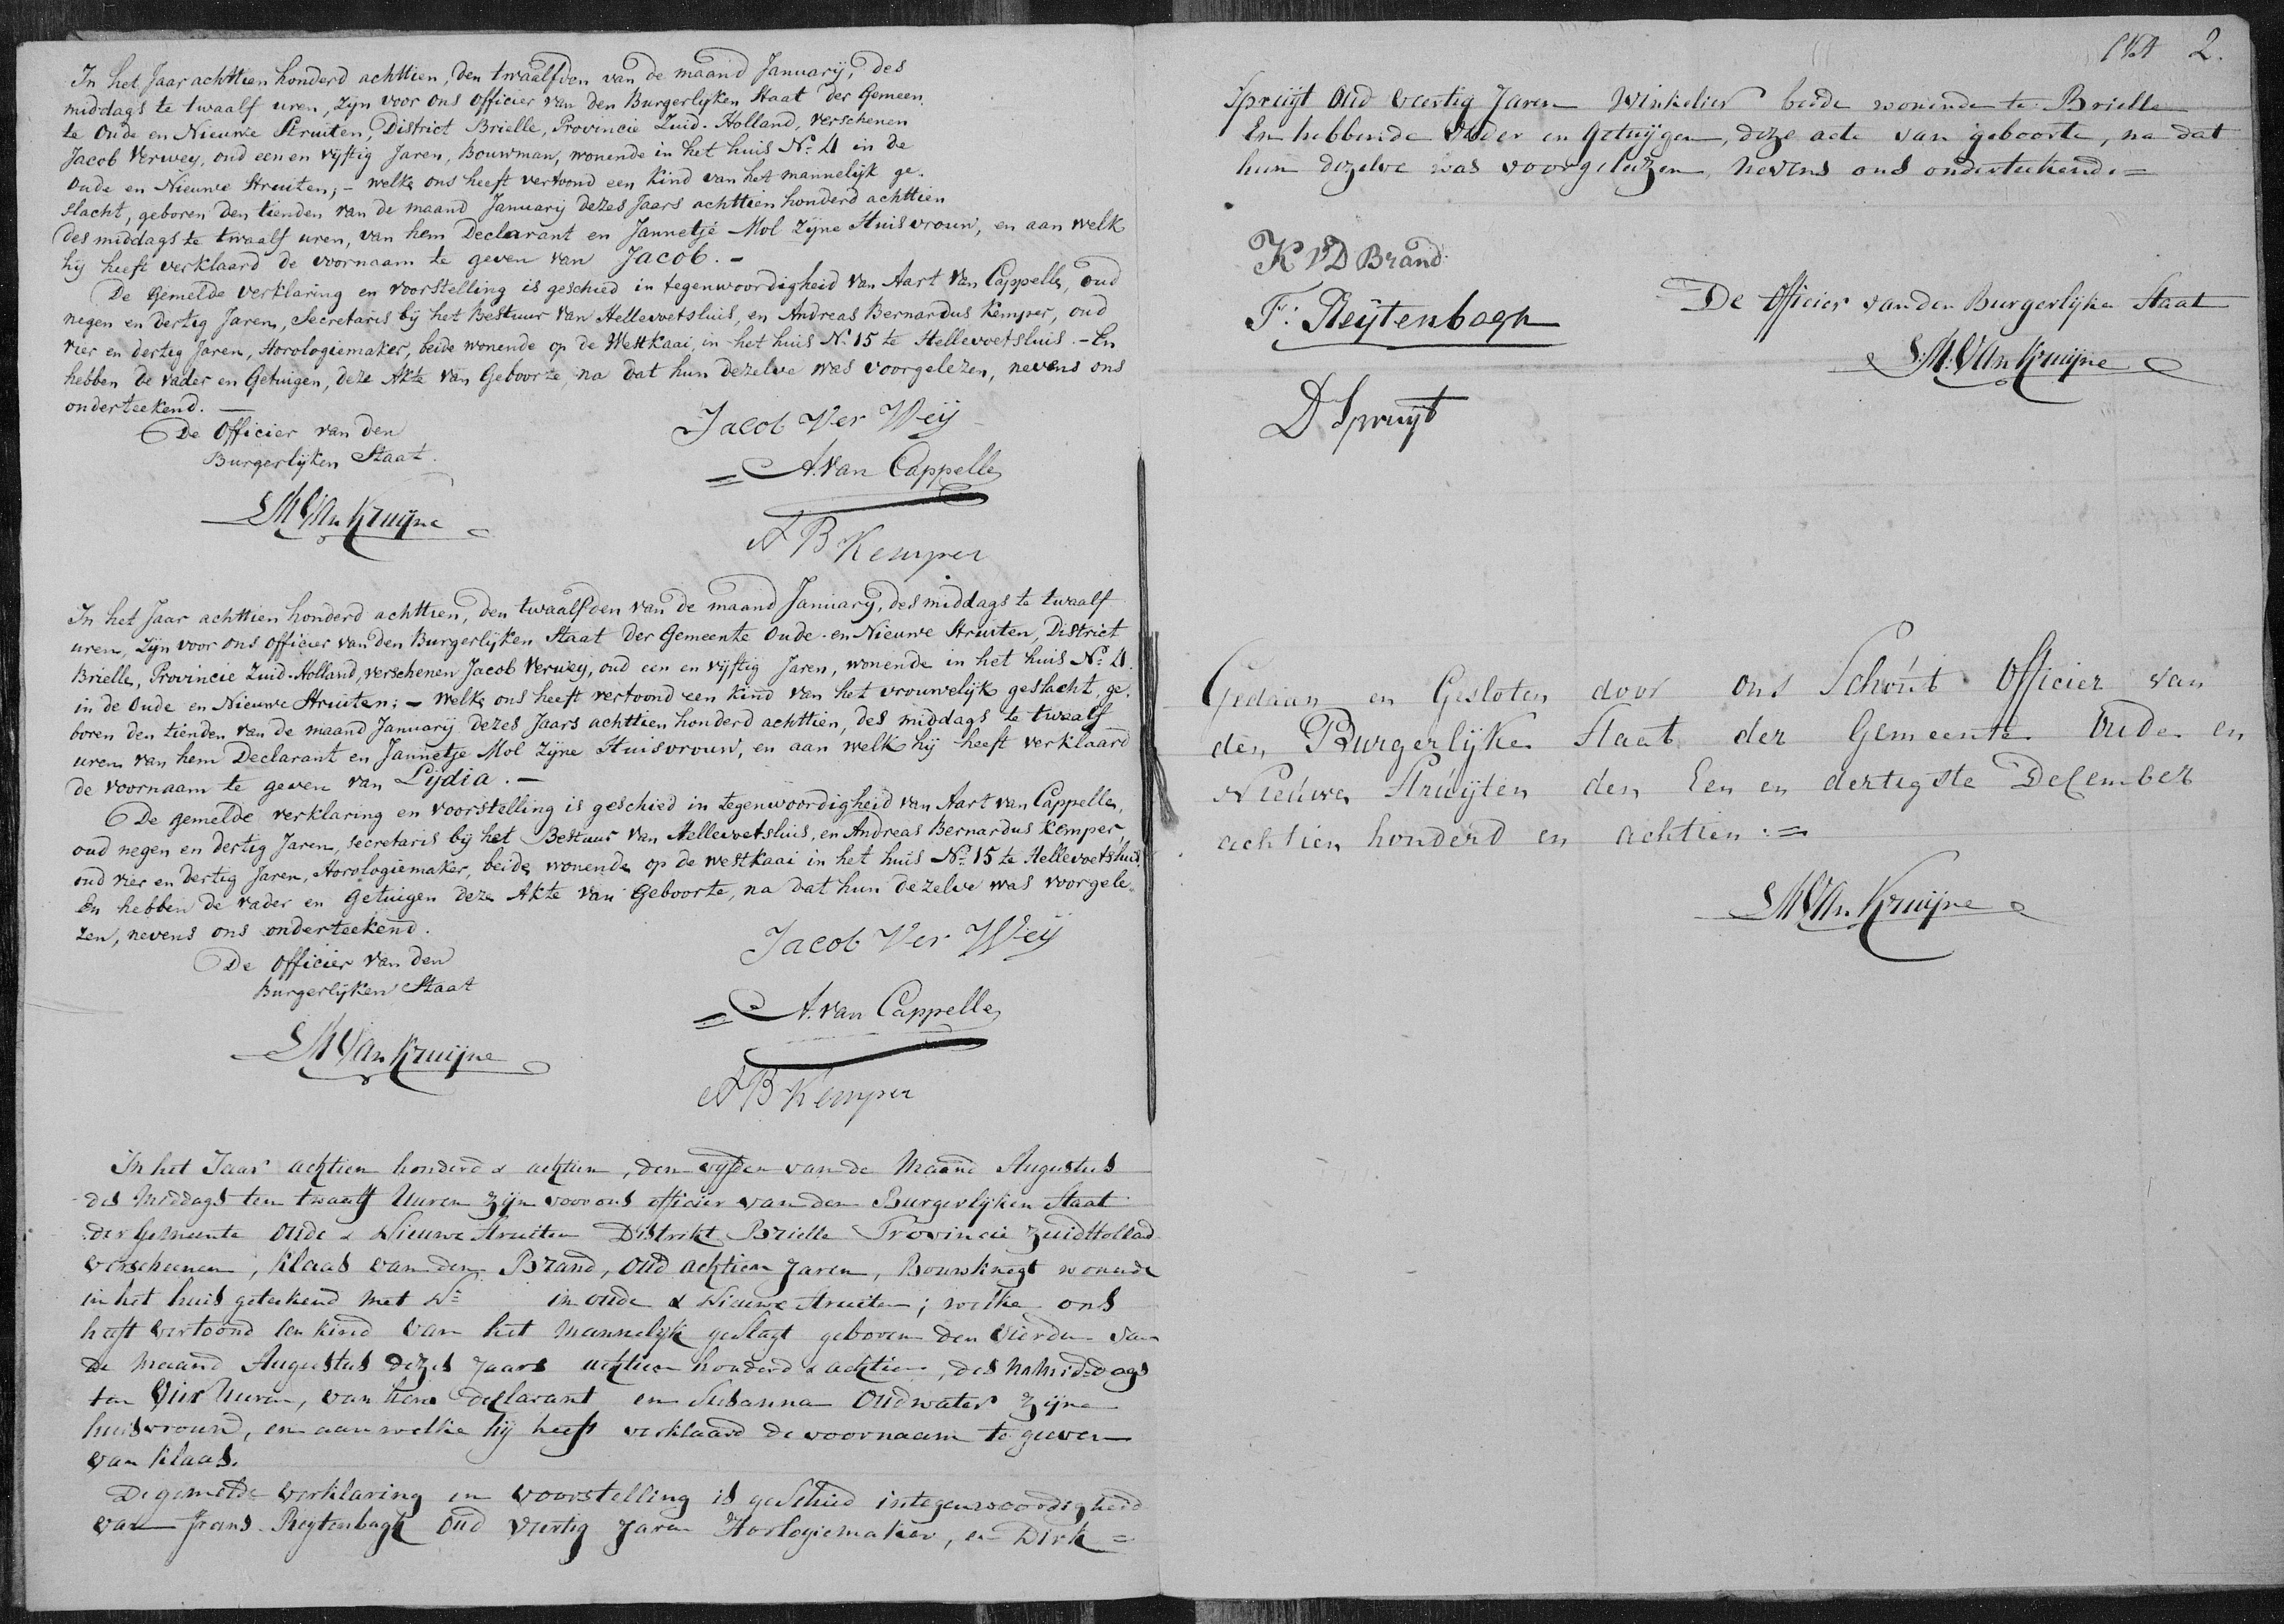 In het Jaar achttien honderd achttien, den twaalfden van de maand January, des
middags te twaalf uren, zyn voor ons officier van den Burgerlyken Staat der Gemeen
te Oude en Nieuwe Struiten, District Brielle, Provincie Zuid-Holland, verschenen
Jacob Verwey, oud een en vyftig Jaren, Bouwman, wonende in het huis No. 4 in de
Oude en Nieuwe Struiten; - welke ons heeft vertoond een Kind van het mannelyk ge-
slacht, geboren den tienden van de maand January dezes Jaars achttien honderd achttien
des middags te twaalf uren, van hem Declarant en Jannetje Mol zyne Huisvrouw, en aan welk
hy heeft verklaard de voornaam te geven van Jacob. -
De Gemelde verklaring en voorstelling is geschied in tegenwoordigheid van Aart van Cappelle, oud
negen en dertig Jaren, Secretaris by het Bestuur van Hellevoetsluis, en Andreas Bernardus Kemper, oud
vier en dertig Jaren, Horologiemaker, beide wonende op de Westkaai in het huis No. 15 te Hellevoetsluis. - En
hebben de vader en Getuigen, deze Akte van Geboorte, na dat hun dezelve was voorgelezen, nevens ons
onderteekend. -
De Officier van den
Burgerlyken Staat.
Jacob Ver Weij
A. van Cappelle
SM Van Kruijne
AB Kemper
In het Jaar achttien honderd achttien, den twaalfden van de maand January, des middags te twaalf
uren, zyn voor ons officier van den Burgerlyken Staat der Gemeente Oude en Nieuwe Struiten, District
Brielle, Provincie Zuid-Holland, verschenen Jacob Verwey, oud een en vyftig Jaren, wonende in het huis No. 4.
in de Oude en Nieuwe Struiten; - welke ons heeft vertoond een kind van het vrouwelyk geslacht, ge-
boren den tienden van de maand January dezes Jaars achttien honderd achttien, des middags te twaalf
uren van hem Declarant en Jannetje Mol zyne Huisvrouw, en aan welk hy heeft verklaard
de voornaam te geven van Lydia. -
De gemelde verklaring en voorstelling is geschied in tegenwoordigheid van Aart van Cappelle,
oud negen en dertig Jaren, secretaris by het Bestuur van Hellevoetsluis, en Andreas Bernardus Kemper,
oud vier en dertig Jaren, Horologiemaker, beide wonende op de Westkaai in het huis No. 15 te Hellevoetsluis.
En hebben de vader en Getuigen deze Akte van Geboorte, na dat hun dezelve was voorgele-
zen, nevens ons onderteekend.
De Officier van den
Burgerlyken Staat
Jacob Ver Weij
A. van Cappelle
SM Van Kruijne
AB Kemper
In het Jaar achtien honderd & achtien, den vyfden van de Maand Augustus
des Middags ten twaalf Uuren zyn voor ons officier van den Burgerlyken Staat
der Gemeente Oude & Nieuwe Struiten Distrikt Brielle Provincie Zuid Hollad
verscheenen, Klaas van den Brand, oud achtien Jaren, Bouwknegt wonende
in het huis geteekend met No. in oude & Nieuwe Struiten; welke ons
heeft vertoond een kind van het Mannelyk geslagt geboren den vierden van
de Maand Augustus dezes Jaars achtien honderd & achtien, des Namiddags
ten Vier Uuren, van hem declarant en Susanna Oudwater zyne
huisvrouw, en aan welke hy heeft verklaard de voornaam te geeven
van Klaas.
De gemelde verklaring en voorstelling is geschied in tegenwoordigheid
van Frans Reytenbagh oud Veertig Jaren Horlogiemaker, en Dirk =
2.
Spruijt Oud veertig Jaren Winkelier beide wonende te Brielle
En hebbende Vader en Getuijgen, deze acte van geboorte, na dat
hun dezelve was voorgeleezen nevens ons onderteekend. =
K VD Brand
F: Reijtenbagh
De Officier van den Burgerlyke Staat
S: M: Van Kruijne
D Spruijt
Gedaan en Gesloten door ons Schout Officier van
den Burgerlyke Staat der Gemeente Oude en
Nieuwe Struijten den Een en dertigste December
achtien honderd en achtien. =
SM Van Kruijne